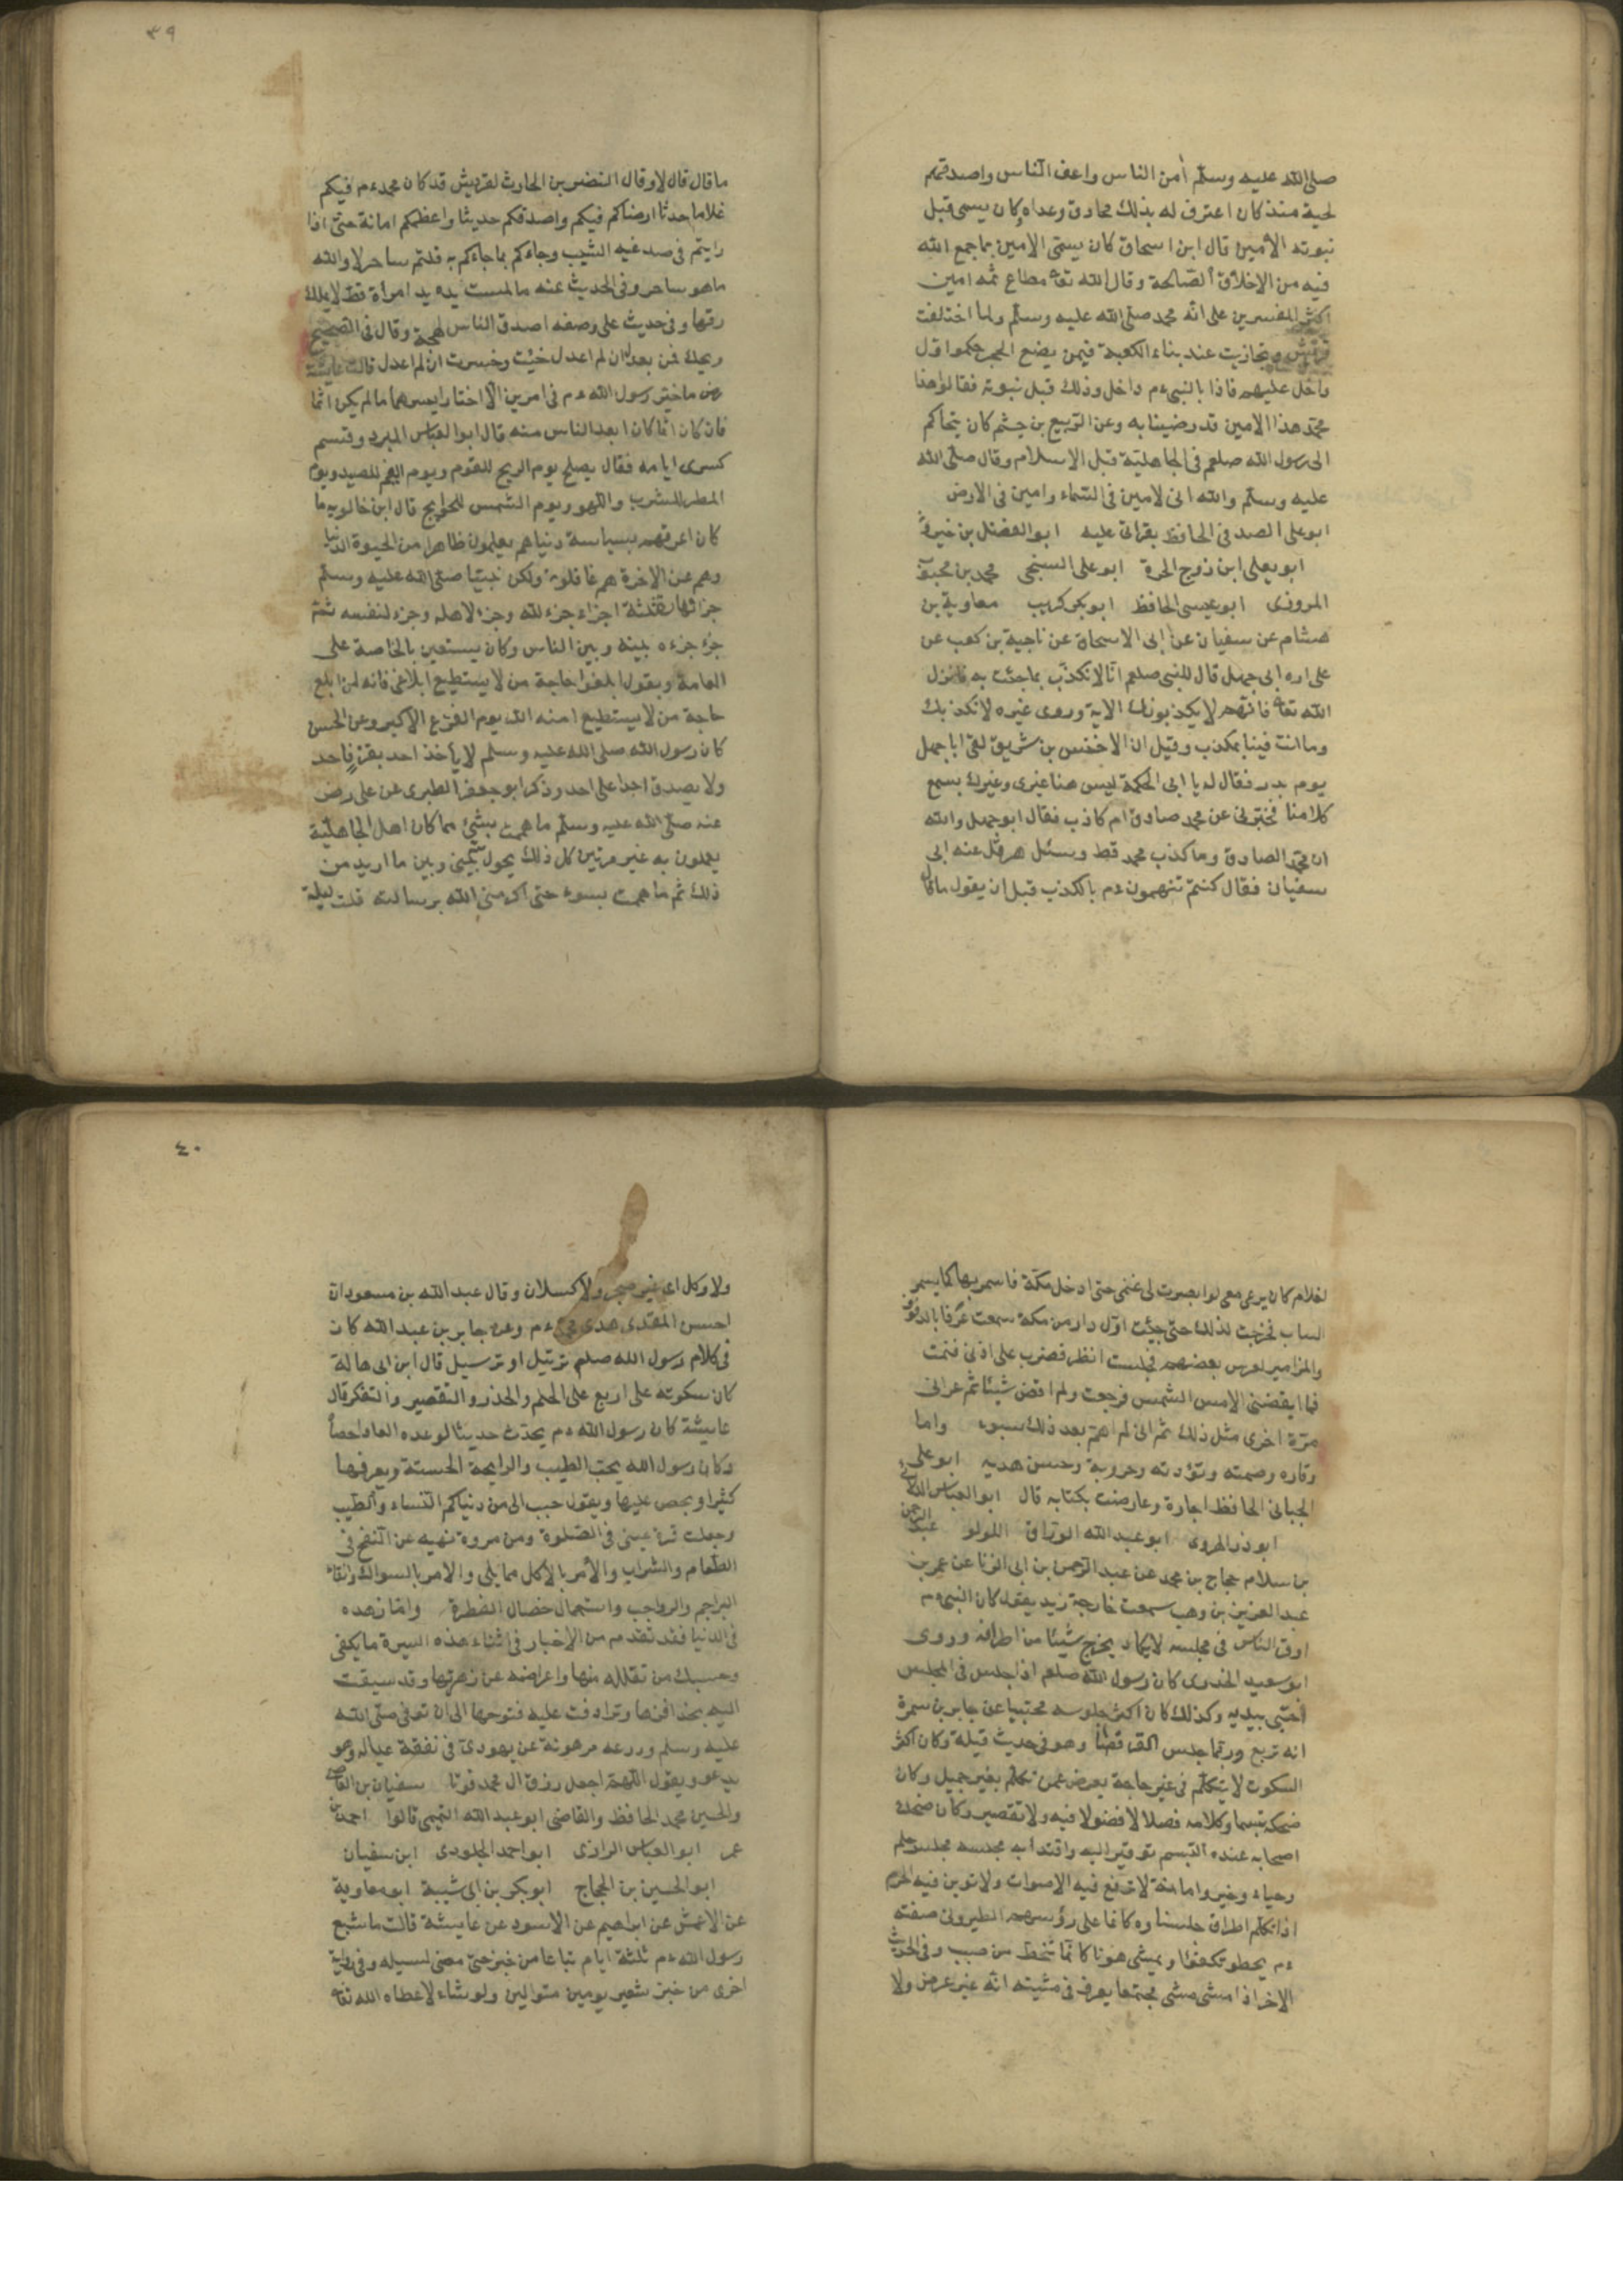 صلى الله عليه وسلم أمن الناس واعف الناس واصدقهم
لهجة منذ كان اعترف له بذلك محادوه وعداه كان يسمى قبل
نبوته الأمين قال ابن اسحاق كان يسمى الامين بما جمع الله
فيه من الاخلاق الصالحة وقال الله تعا مطاع ثمه امين
اكثر المفسرين على انه محمد صلى الله عليه وسلم ولما اختلفت
قريش وتحازبت عند بناء الكعبة فيمن يضع الحجر حكموا اول
داخل عليهم فاذا بالنبي ءم داخل وذلك قبل نبوته فقالوا هذا
محمد هذا الامين قد رضينا به وعن الربيع بن خيثم كان يتحاكم
الى رسول الله صلعم في الجاهلية قبل الاسلام وقال صلى الله
عليه وسلم والله انى لامين فى السماء وامين فى الارض
ابو على الصدفى الحافظ بقرائى عليه ابو الفضل بن خيرون
ابو يعلى ابن زوج الحرة ابو على السنجى محمد بن محبوب
المروزى ابو عيسى الحافظ ابو كريب معاوية بن
هشام عن سفيان عن ابى الاسحاق عن ناجية بن كعب عن
على ان ابى جهل قال للنبى صلعم انا لا نكذب بما جئت به فانزل
الله تعا فانهم لا يكذبونك الاية وروى غيره لا نكذبك
وما انت فينا بمكذب وقيل ان الاخنس بن شريق لقى ابا جهل
يوم بدر فقال له يا ابى الحكم ليس هنا غيرى وغيرك يسمع
كلامنا فخبرنى عن محمد صادق ام كاذب فقال ابو جهل والله
ان محمد الصادق وما كذب محمد قط وسئل هرقل عنه ابى
سفيان فقال كنتم تتهمون ءم بالكذب قبل ان يقول ما قال
٣٩
ما قال قال لا وقال النضر بن الحارث لقريش قد كان محمد ءم فيكم
غلاما حدثا ارضاكم فيكم واصدقكم حديثا واعظمكم امانة حتى اذا
رايتم فى صدغيه الشيب وجاءكم بما جاءكم به قلتم ساحر لا والله
ما هو ساحر وفى الحديث عنه ما لمست يده يد امرأة قط لا يملك
رقها وفى حديث على وصفه اصدق الناس لهجة وقال فى الصحيح
ويحك فمن يعدل ان لم اعدل خبت وخسرت ان لم اعدل قالت عايشة
رض ما خير رسول الله ءم فى امرين الا اختار ايسرهما ما لم يكن اثما
فان كان اثما كان ابعد الناس منه قال ابو العباس المبرد وقسم
كسرى ايامه فقال يصلح يوم الريح للنوم ويوم الغيم للصيد ويوم
المطر للشرب واللهو ويوم الشمس للحوايج قال ابن خالويه ما
كان اعرفهم بسياسة دنياهم يعلمون ظاهرا من الحيوة الدنيا
وهم عن الاخرة هم غافلون ولكن نبينا صلى الله عليه وسلم
جزا نهاره ثلثة اجزاء جزء لله وجزء لاهله وجزء لنفسه ثم
جزء جزءه بينه وبين الناس وكان يستعين بالخاصة على
العامة ويقول ابلغوا حاجة من لا يستطيع ابلاغى فانه من ابلغ
حاجة من لا يستطيع امنه الله يوم الفزع الاكبر وعن الحسن
كان رسول الله صلى الله عليه وسلم لا يأخذ احد بقرف احد
ولا يصدق احدا على احد وذكر ابو جعفر الطبرى عن على رض
عنه صلى الله عليه وسلم ما هممت بشئ مما كان اهل الجاهلية
يعملون به غير مرتين كل ذلك يحول بينى وبين ما اريد من
ذلك ثم ما هممت بسوء حتى اكرمنى الله برسالته قلت ليلة
لغلام كان يرعى معى لو ابصرت لى غنمى حتى ادخل مكة فاسمر بها كما يسمر
الساب فخرجت لذلك حتى جئت اول دار من مكة سمعت عزفا بالدفوف
والمزامير لعرس بعضهم فجلست انظر فضرب على اذنى فنمت
فما ايقضنى الا مس الشمس فرجعت ولم اقض شيئا ثم عرانى
مرة اخرى مثل ذلك ثم انى لم اهم بعد ذلك بسوء واما
وقاره وصمته وتؤدته ومروءته وحسن هديه ابو على
الجيانى الحافظ اجازة وعارضت بكتابه قال ابو العباس الدلائى
ابو ذر الهروى ابو عبد الله الوراق اللولو عبد الرحمن
بن سلام حجاج بن محمد عن عبد الرحمن بن ابى الزنا عن عمر بن
عبد العزيز بن وهب سمعت خارجة زيد يقول كان النبى ءم
اوقر الناس فى مجلسه لا يكاد يخرج شيئا من اطرافه وروى
ابو سعيد الخدرى كان رسول الله صلعم اذا جلس فى المجلس
احتبى بيديه وكذلك كان اكثر جلوسه محتبيا عن جابر بن سمرة
انه تربع وربما جلس القرفصا وهو فى حديث قيلة وكان اكثر
السكوت لا يتكلم فى غير حاجة يعرض عمن تكلم بغير جميل وكان
ضحكه تبسما وكلامه فصلا لا فضولا فيه ولا تقصير وكان ضحك
اصحابه عنده التبسم توقيرا له واقتداء به مجلسه مجلس حلم
وحياء وخير وامانة لا ترفع فيه الاصوات ولا توبن فيه الحرم
اذا تكلم اطرق جلسناوه كانما على رؤسهم الطير وفى صفته
ءم يخطو تكفؤا ويمشى هونا كانما ينحط من صبب وفى الحديث
الاخر اذا مشى مشى مجتمعا يعرف فى مشيته انه غير غرض ولا
٤٠
ولا وكل اى غير ضجر ولا كسلان وقال عبد الله بن مسعود ان
احسن الهدى هدى محمد ءم وعن جابر بن عبد الله كان
فى كلام رسول الله صلعم ترتيل او ترسيل قال ابن ابى هالة
كان سكوته على اربع على الحلم والحذر والتقصير والتفكر قال
عايشة كان رسول الله ءم يحدث حديثا لو عده العاد احصاء
وكان رسول الله يحب الطيب والرايحة الحسنة ويعرفها
كثيرا ويحض عليها ويقول حبب الى من دنياكم النساء والطيب
وجعلت قرة عينى فى الصلوة ومن مروة نهيه عن النفخ فى
الطعام والشراب والأمر بالاكل مما يلى والامر بالسواك وانقاء
البراجم والرواجب واستعمال خصال الفطرة واما زهده
فى الدنيا فقد تقدم من الاخبار فى اثناء هذه السيرة ما يكفى
وحسبك من تقلله منها واعراضه عن زهرتها وقد سيقت
اليه بحذافرها وترادفت عليه فتوحها الى ان توفى صلى الله
عليه وسلم ودرعه مرهونة عن يهودى فى نفقة عياله وهو
يدعو ويقول اللهم اجعل رزق ال محمد قوتا سفيان بن العاص
والحسين محمد الحافظ والقاضى ابو عبد الله التميمى قالوا احمد بن
عمر ابو العباس الرازى ابو احمد الجلودى ابن سفيان
ابو الحسين بن الحجاج ابو بكر بن ابى شيبة ابو معاوية
عن الاعمش عن ابراهيم عن الاسود عن عايشة قالت ما شبع
رسول الله ءم ثلثة ايام تباعا من خبز حتى مضى لسبيله وفى رواية
اخرى من خبز شعير يومين متوالين ولو شاء لاعطاه الله تعا